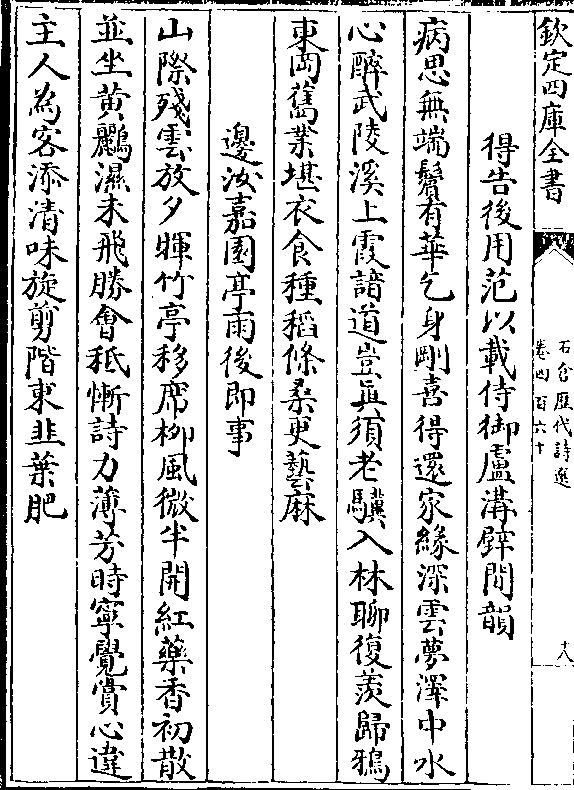 欽定四庫全書
石倉歷代詩選
卷四百六十
十八
得告後用范以載侍御盧溝壁間韻
病思無端鬢有華乞身剛喜得還家緣深雲夢澤中水
心醉武陵溪上霞諳道豈真須老驥入林聊復羨歸鴉
東岡舊業堪衣食種稻條桑更藝麻
邊汝嘉園亭雨後即事
山際殘雲放夕暉竹亭移席柳風微半開紅藥香初散
並坐黃鸝濕未飛勝會秪慚詩力薄芳時寧覺賞心違
主人為客添清味旋剪階東韭葉肥